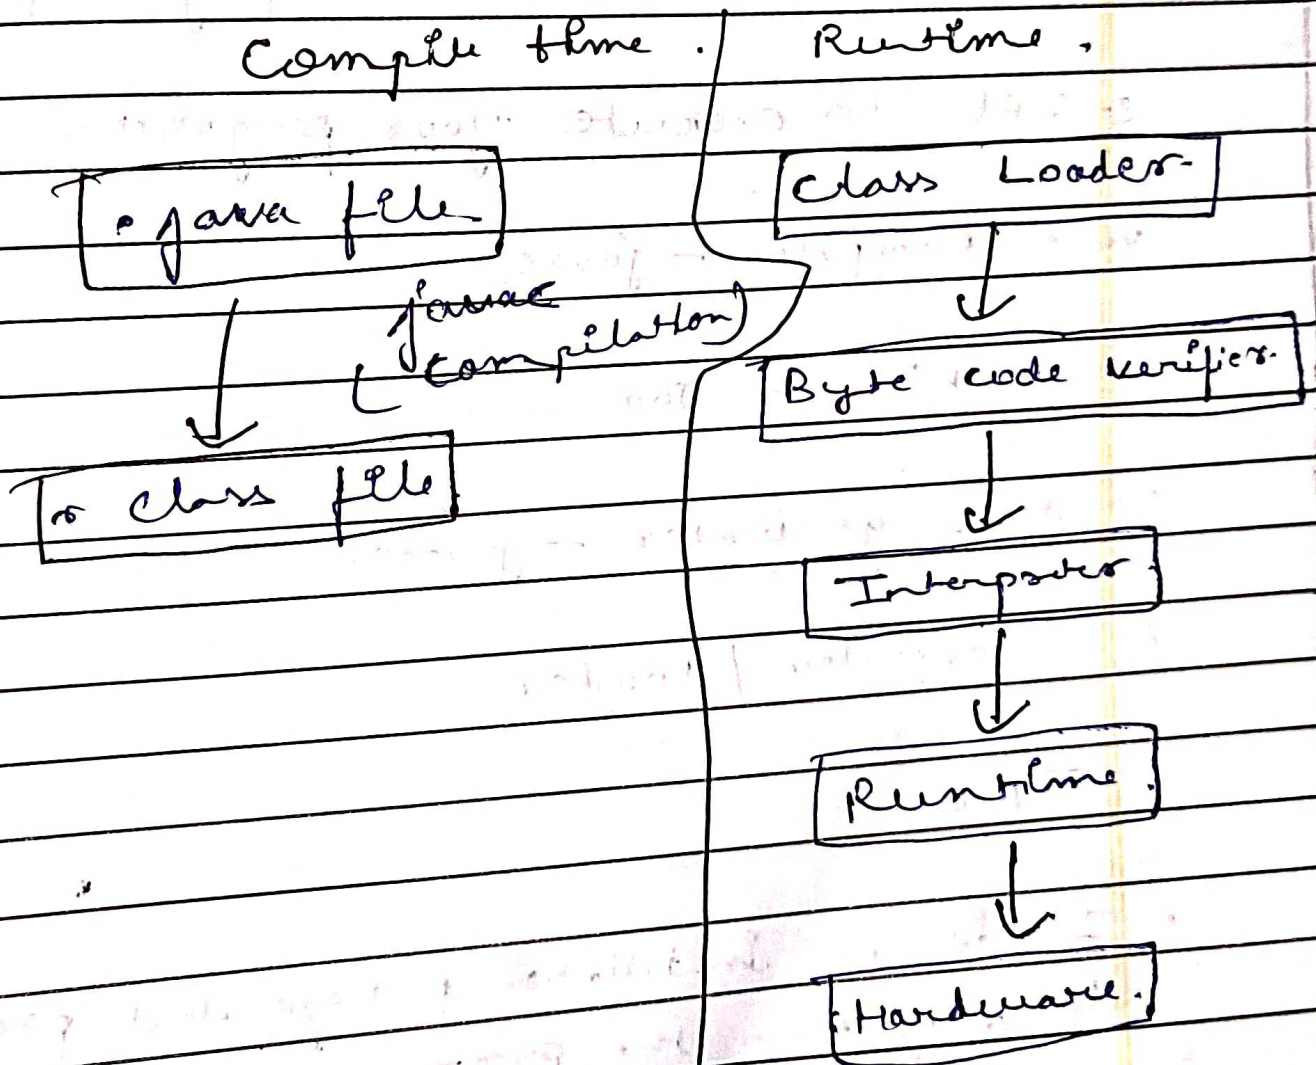 Compile time.
Runtime.
.java file
javac
(compilation)
.class file
Class Loader
Byte code verifier
Interpreter
Runtime
Hardware